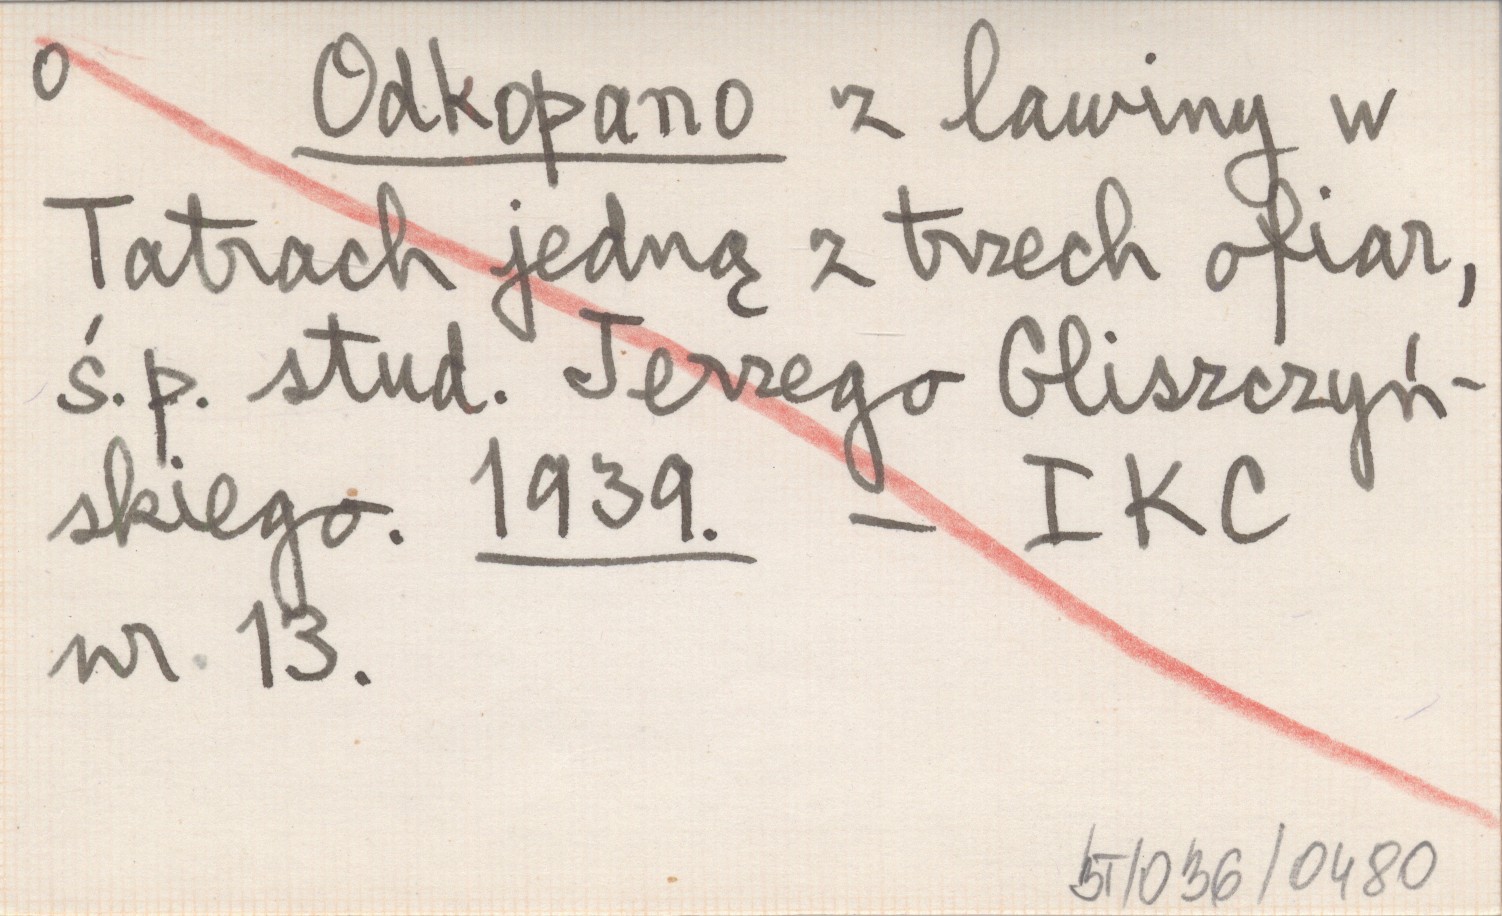 O Odkopano z lawiny w
Tatrach jedną z trzech ofiar,
ś.p. stud. Jerzego Gliszczyń-
skiego. 1939. — IKC
nr. 13.
/036/0480